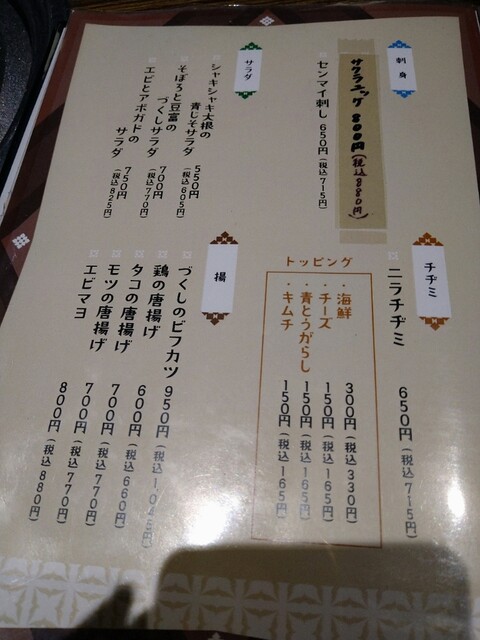 刺身
サクラユッケ 800円(税込880円)
センマイ刺し 650円(税込715円)
サラダ
シャキシャキ大根の
青じそサラダ 550円(税込605円)
そぼろと豆富の
づくしサラダ 700円(税込770円)
エビとアボガドの
サラダ 750円(税込825円)
チヂミ
ニラチヂミ 650円(税込715円)
トッピング
・海鮮 300円(税込330円)
・チーズ 150円(税込165円)
・青とうがらし 150円(税込165円)
・キムチ 150円(税込165円)
揚
づくしのビフカツ 950円(税込1045円)
鶏の唐揚げ 600円(税込660円)
タコの唐揚げ 700円(税込770円)
モツの唐揚げ 700円(税込770円)
エビマヨ 800円(税込880円)